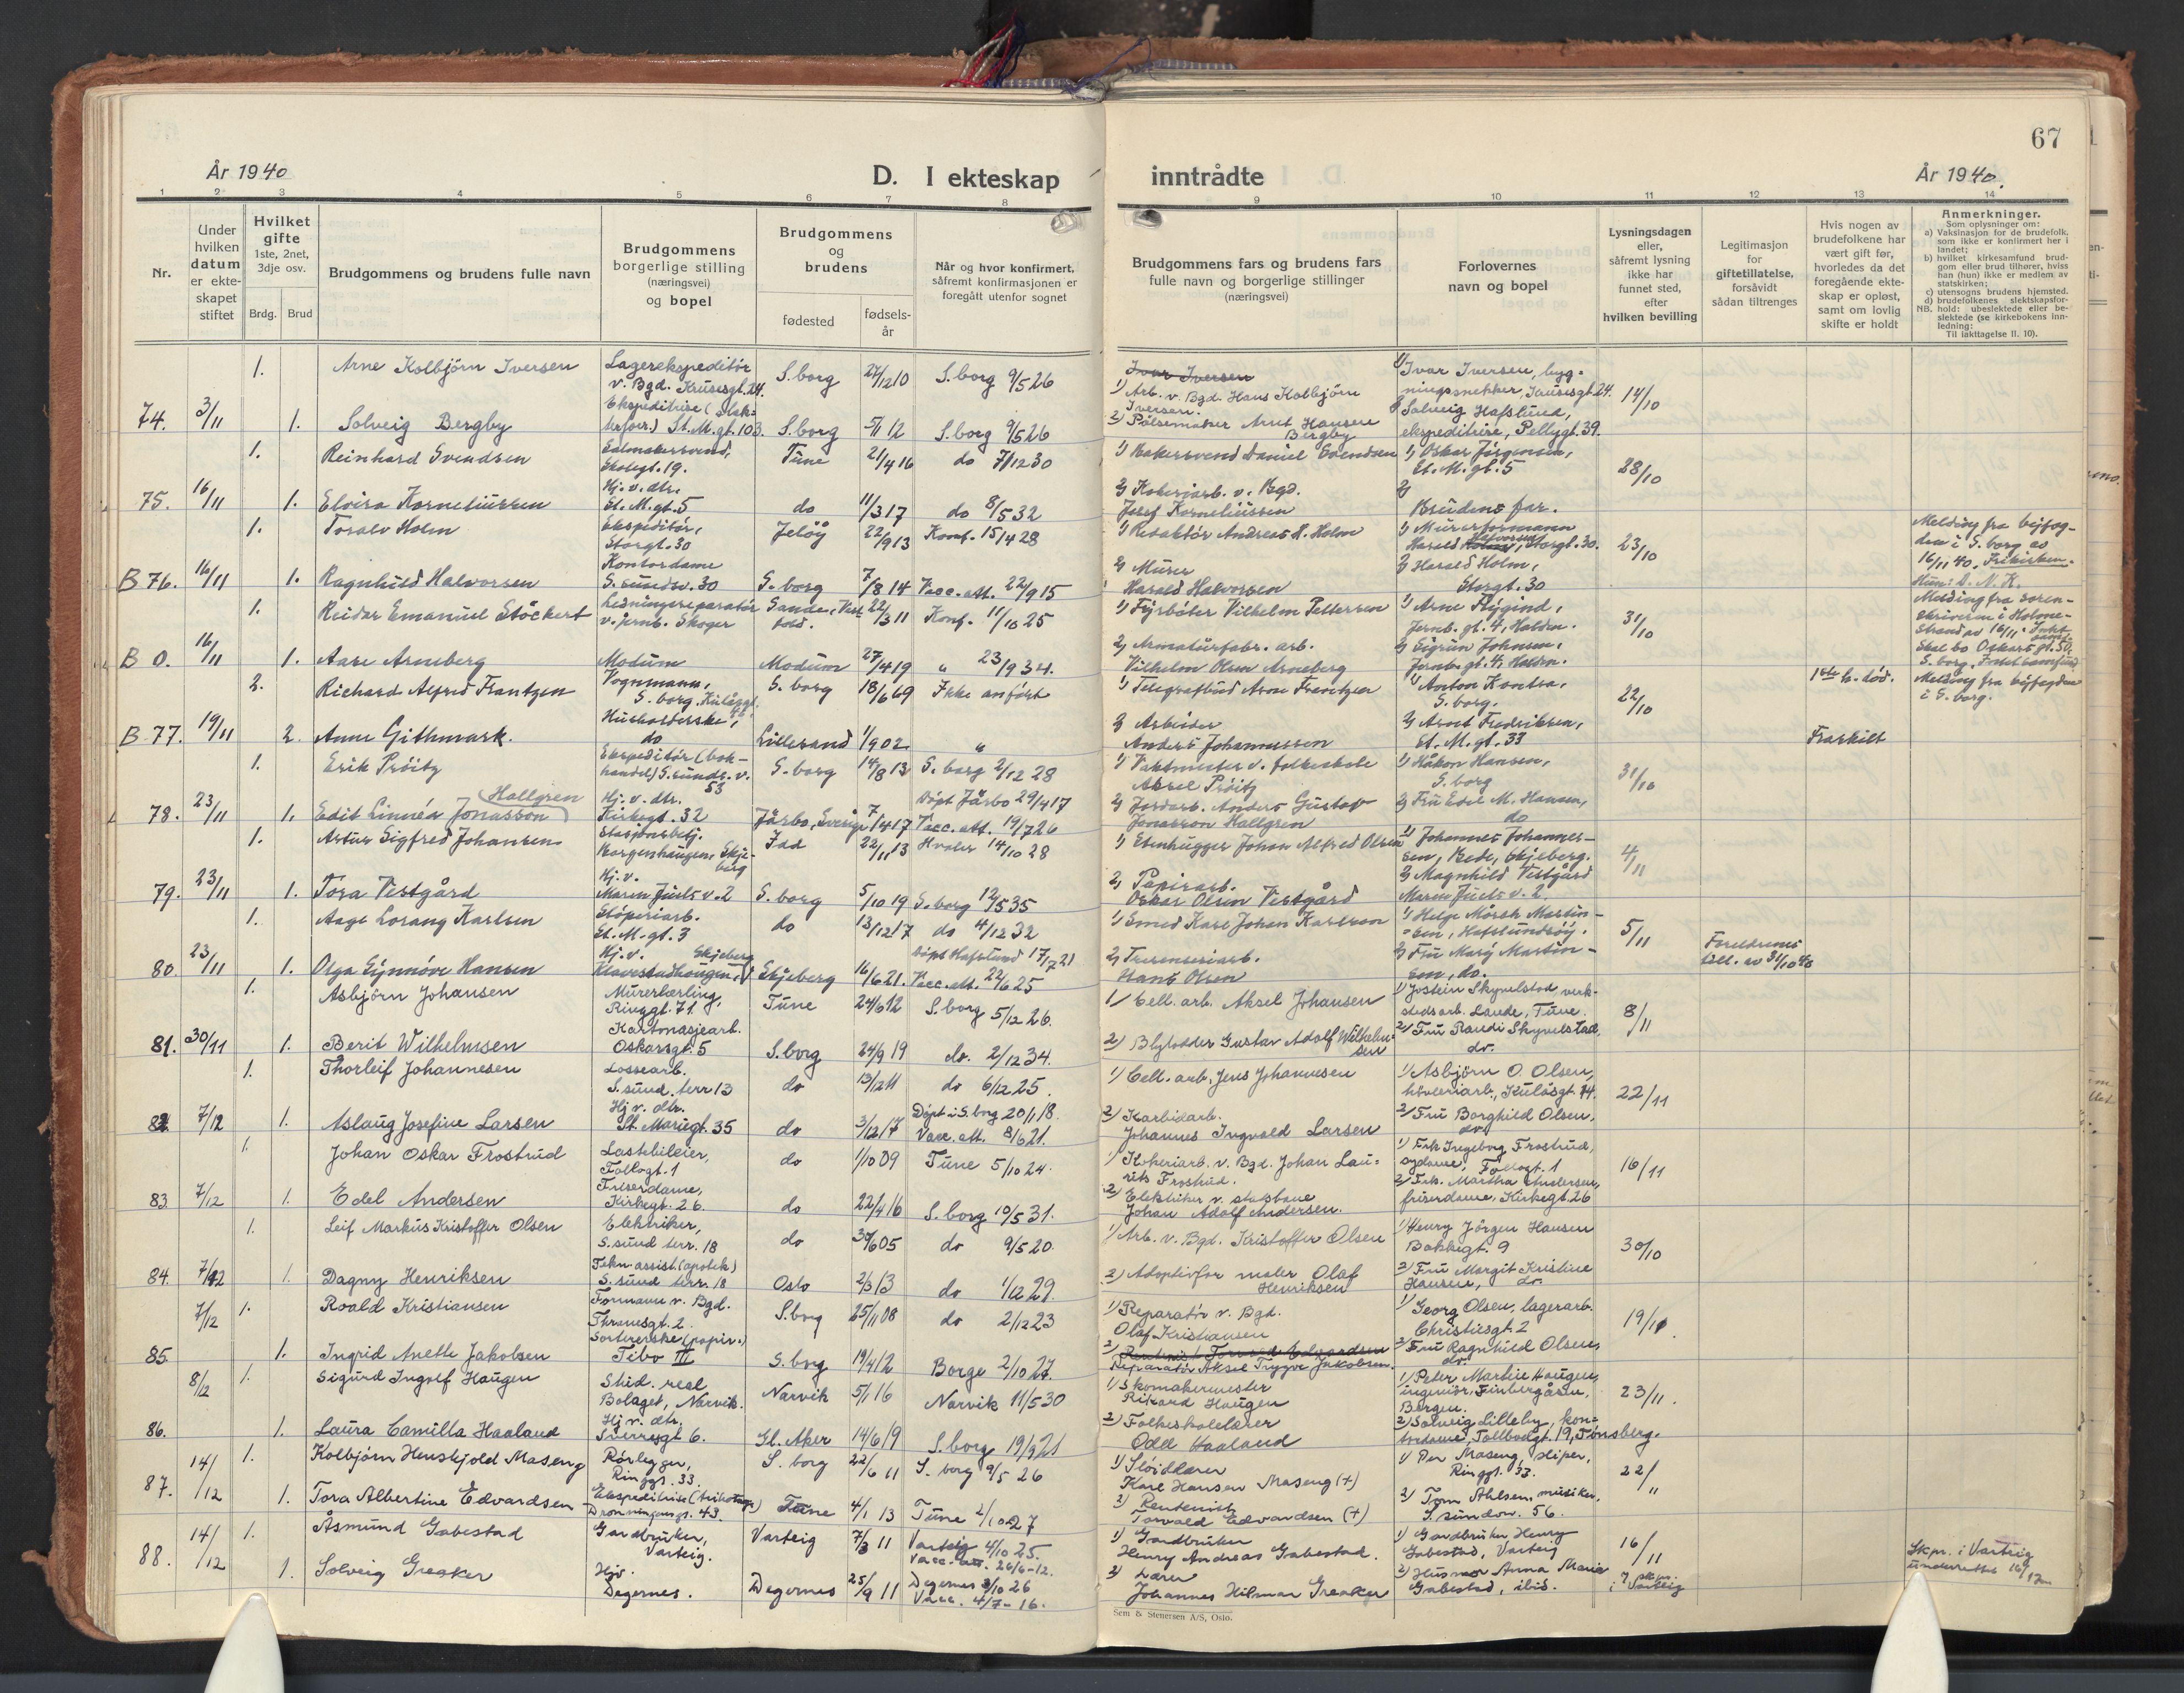 67
År 1940
D. I ekteskap inntrådte
År 1940.
1 2 3 4 5 6 7 8 9 10 11 12 13 14
Nr.
Under hvilken datum er ekteskapet stiftet
Hvilket gifte
1ste, 2net, 3dje osv.
Brdg. Brud
Brudgommens og brudens fulle navn
Brudgommens borgerlige stilling (næringsvei) og bopel
Brudgommens og brudens
fødested
fødselsår
Når og hvor konfirmert, såfremt konfirmasjonen er foregått utenfor sognet
Brudgommens fars og brudens fars fulle navn og borgerlige stillinger (næringsvei)
Forlovernes navn og bopel
Lysningsdagen eller, såfremt lysning ikke har funnet sted, efter hvilken bevilling
Legitimasjon for giftetillatelse, forsåvidt sådan tiltrenges
Hvis nogen av brudefolkene har vært gift før, hvorledes da det foregående ekteskap er opløst, samt om lovlig skifte er holdt
Anmerkninger.
Som oplysninger om:
a) Vaksinasjon for de brudefolk, som ikke er konfirmert her i landet;
b) hvilket kirkesamfund brudgom eller brud tilhører, hviss han (hun) ikke er medlem av statskirken;
c) utensogns brudens hjemsted.
d) brudefolkenes slektskapsforhold: ubeslektede eller beslektede (se kirkebokens innledning:
NB. Til iakttagelse II. 10).
1. Arne Kolbjörn Iversen Lagerekspeditör v. Bgd. Krusesgt. 24. S.borg 27/12 10 S.borg 9/5 26 Ivar Iversen 1) Arb. v. Bgd. Hans Kolbjörn Iversen. 1) Ivar Iversen, bygningssnekker, Krusesgt 24. 14/10
74. 3/11 1. Solveig Bergby St. M. gt. 103. S.borg 5/11 12 S.borg 9/5 26 2) Pölsemaker Arnt Hansen Bergby 2) Solveig Hafslund, ekspeditrise, Pellygt. 39.
1. Reinhard Svendsen Salmakersvend, Skolegt. 19. Tune 21/4 16 do 7/12 30 1) Bakersvend Daniel Svendsen 1) Oskar Jörgensen, St. M. gt. 5 28/10
75. 16/11 1. Elvira Korneliussen Hj. v. dtr. St. M. gt. 5 do 11/3 17 do 8/5 32 2) Kokeriarb. v. Bgd. Josef Korneliussen 2) Brudens far.
1. Toralv Holm Ekspeditör, Storgt. 30 Jelöy 22/9 13 Konf. 15/4 28 1) Redaktör Andreas H. Holm 1) Murerformann Harald Halvorsen, Storgt. 30. 23/10 Melding fra byfogden i S.borg av 16/11 40. Frikirken.
B 76. 16/11 1. Ragnhild Halvorsen Kontordame S.sundsv. 30 S.borg 7/8 14 Vacc. att. 22/9 15 2) Murer Harald Halvorsen 2) Harald Holm, Storgt. 30
1. Reidar Emanuel Stöckert Ledningsreparatör v. jernb. Skoger Sande, Vestfold. 22/3 11 Konf. 11/10 25 1) Fyrböter Vilhelm Pettersen 1) Arne Flygind, Jernb. gt. 4, Halden. 31/10 Melding fra sorenskriveren i Holmestrand av 16/11.
B 0. 16/11 1. Aase Arneberg Modum Modum 27/4 19 " 23/9 34. 2) Armaturfabr. arb. Vilhelm Olsen Arneberg 2) Sigrun Johnsen, Jernb. gt. 4, Halden. Skal bo Oskars gt. 50, S.borg.
2. Richard Alfred Frantzen Vognmann, S.borg. 18/6 69 Ikke anfört 1) Telegrafbud Arne Frantzen 1) Anton Kontra, S.borg. 22/10 1ste h. död. Melding fra byfogden i S.borg.
B 77. 19/11 2. Anne Githmark. Husholderske, do Lillesand 1/9 02 " 2) Arbeider Anders Johannessen 2) Arvet Fredriksen, St. M. gt. 33 Fraskilt
1. Erik Pröitz Ekspeditör (bokhandel) S.sunds. v. 53 S.borg 14/8 13 S.borg 2/12 28 1) Vaktmester v. folkeskole Aksel Pröitz 1) Håkon Hansen, S.borg 31/10
78. 23/11 1. Edit Linnéa Jonasson Hallgren Hj. v. dtr. Kirkegt. 32 Järbo, Sverige 7/4 17 Döpt Järbo 29/4 17 Vacc. att. 19/7 26 2) Jordarb. Anders Gustav Jonasson Hallgren 2) Fru Edel M. Hansen, do
1. Artur Sigfred Johansen Stasjonsbetj. Borgenhaugen, Skjeberg Idd 22/11 13 Hvaler 14/10 28 1) Stenhugger Johan Alfred Olsen 1) Johannes Johannessen, Bede, Skjeberg. 4/11
79. 23/11 1. Tora Vestgård Hj. v. Maren Juels v. 2 S.borg 5/10 19 S.borg 12/5 35 2) Papirarb. Oskar Olsen Vestgård 2) Magnhild Vestgård Maren Juels v. 2.
1. Aage Lorang Karlsen Stöperiarb. St. M. gt. 3 do 13/12 17 do 4/12 32 1) Smed Karl Johan Karlsson 1) Helge Mörch Martinsen, Hafslundsöy. 5/11
80. 23/11 1. Olga Synnöve Hansen Hj. v. Klavestadhaugen, Skjeberg Skjeberg 16/6 21. Döpt Hafslund 17/7 21 Vacc. att. 22/6 25 2) Hans Olsen 2) Fru Mary Martinsen, do. Foreldrenes till. av 31/10 40
1. Asbjörn Johansen Murerlærling, Ringgt. 71. Tune 24/6 12 S.borg 5/12 26. 1) Cell. arb. Aksel Johansen 1) Jostein Skynelstad verkstedsarb. Lande, Tune. 8/11
81. 30/11 1. Berit Wilhelmsen Kartonasjearb. Oskarsgt. 5 S.borg 24/9 19 do. 2/12 34. 2) Blylodder Gustav Adolf Wilhelmsen 2) Fru Randi Skynelstad, do.
1. Thorleif Johannesen Lossearb. S.sund. terr 13 do 13/12 11 do 6/12 25. 1) Cell. arb. Jens Johannesen 1) Asbjörn O. Olsen, höveriarb., Kulåsgt. 44. 22/11
82. 7/12 1. Aslaug Josefine Larsen Hj. v. dtr. St. Mariegt. 35 do 3/12 17 Döpt i S.borg 20/1 18. Vacc. att. 8/6 21. 2) Karbidarb. Johannes Ingvald Larsen 2) Fru Borghild Olsen, do.
1. Johan Oskar Frostrud Lastebileier, Follogt. 1 do 1/10 09 Tune 5/10 24. 1) Kokeriarb. v. Bgd. Johan Laurits Frostrud. 1) Frk Ingeborg Frostrud, sydame, Follogt. 1 16/11
83. 7/12 1. Edel Andersen Friserdame, Kirkegt. 26. do 22/4 16 S.borg 10/5 31. 2) Elektriker v. statsbane Johan Adolf Andersen. 2) Frk. Martha Andersen, friserdame, Kirkegt. 26
1. Leif Markus Kristoffer Olsen Elektriker, S.sund terr. 18 do 30/6 05 do 9/5 20. 1) Arb. v. Bgd. Kristoffer Olsen 1) Henry Jörgen Hansen Bakkegt. 9 30/10
84. 7/12 1. Dagny Henriksen Tekn. assist. (apotek) S.sund terr. 18 Oslo 2/3 13 do 1/12 29. 2) Adoptivfar maler Olaf Henriksen 2) Fru Margit Kristine Hansen, do.
7/12 1. Roald Kristiansen Formann v. Bgd. Thranesgt. 2. S.borg 25/11 08 do 2/12 23 1) Reparatör v. Bgd. Olaf Kristiansen 1) Georg Olsen, lagerarb. Christiesgt. 2 19/11.
85. 1. Ingrid Anette Jakobsen Sortererske (papir.) Tibo III S.borg 19/4 12 Borge 2/10 27. 2) Rentenist Torvald Edvardsen Reparatör Aksel Trygve Jakobsen. 2) Fru Ragnhild Olsen, do.
8/12 1. Sigurd Ingolf Haugen Stud. real Bolaget, Narvik. Narvik 5/1 16 Narvik 11/5 30 1) Skomakermester Rikard Haugen 1) Peter Martin Haugen, ingeniör, Finbergåsen, Bergen. 23/11.
86. 1. Laura Camilla Haaland Hj v. dtr. Sverresgt 6. Gl. Aker 14/6 19 S.borg 19/9 21 2) Folkeskolelærer Odd Haaland 2) Solveig Lilleby, kontordame, Tollbodgt. 19, Tönsberg.
14/12 1. Kolbjörn Henskjold Maseng Rörlegger, Ringgt. 33. S.borg 22/6 11 S.borg 9/5 26 1) Slöidlærer Karl Hansen Maseng (+) 1) Per Maseng, sliper, Ringgt. 33. 22/11
87. 1. Tora Albertine Edvardsen Ekspeditrise (trikotage) Dronningensgt. 43. Tune 4/1 13 Tune 2/10 27 2) Rentenist Torvald Edvardsen (+) 2) Tom Ahlsen, musiker, S.sundsv. 56.
14/12 1. Åsmund Gabestad Gardbruker, Varteig. Varteig 7/3 11 Varteig 4/10 25. Vacc. att. 26/6-12. 1) Gardbruker Henry Andreas Gabestad. 1) Gardbruker Henry Gabestad, Varteig 16/11 i Varteig
88. 1. Solveig Greaker Hjv. Degernes. Degernes 25/9 11 Degernes 3/10 26 Vacc. 4/7-16. 2) Lærer Johannes Hilmar Greaker 2) Husmor Anna Marie Gabestad, ibid. Skpr. i Varteig underrettet
Sem & Stenersen A/S, Oslo.